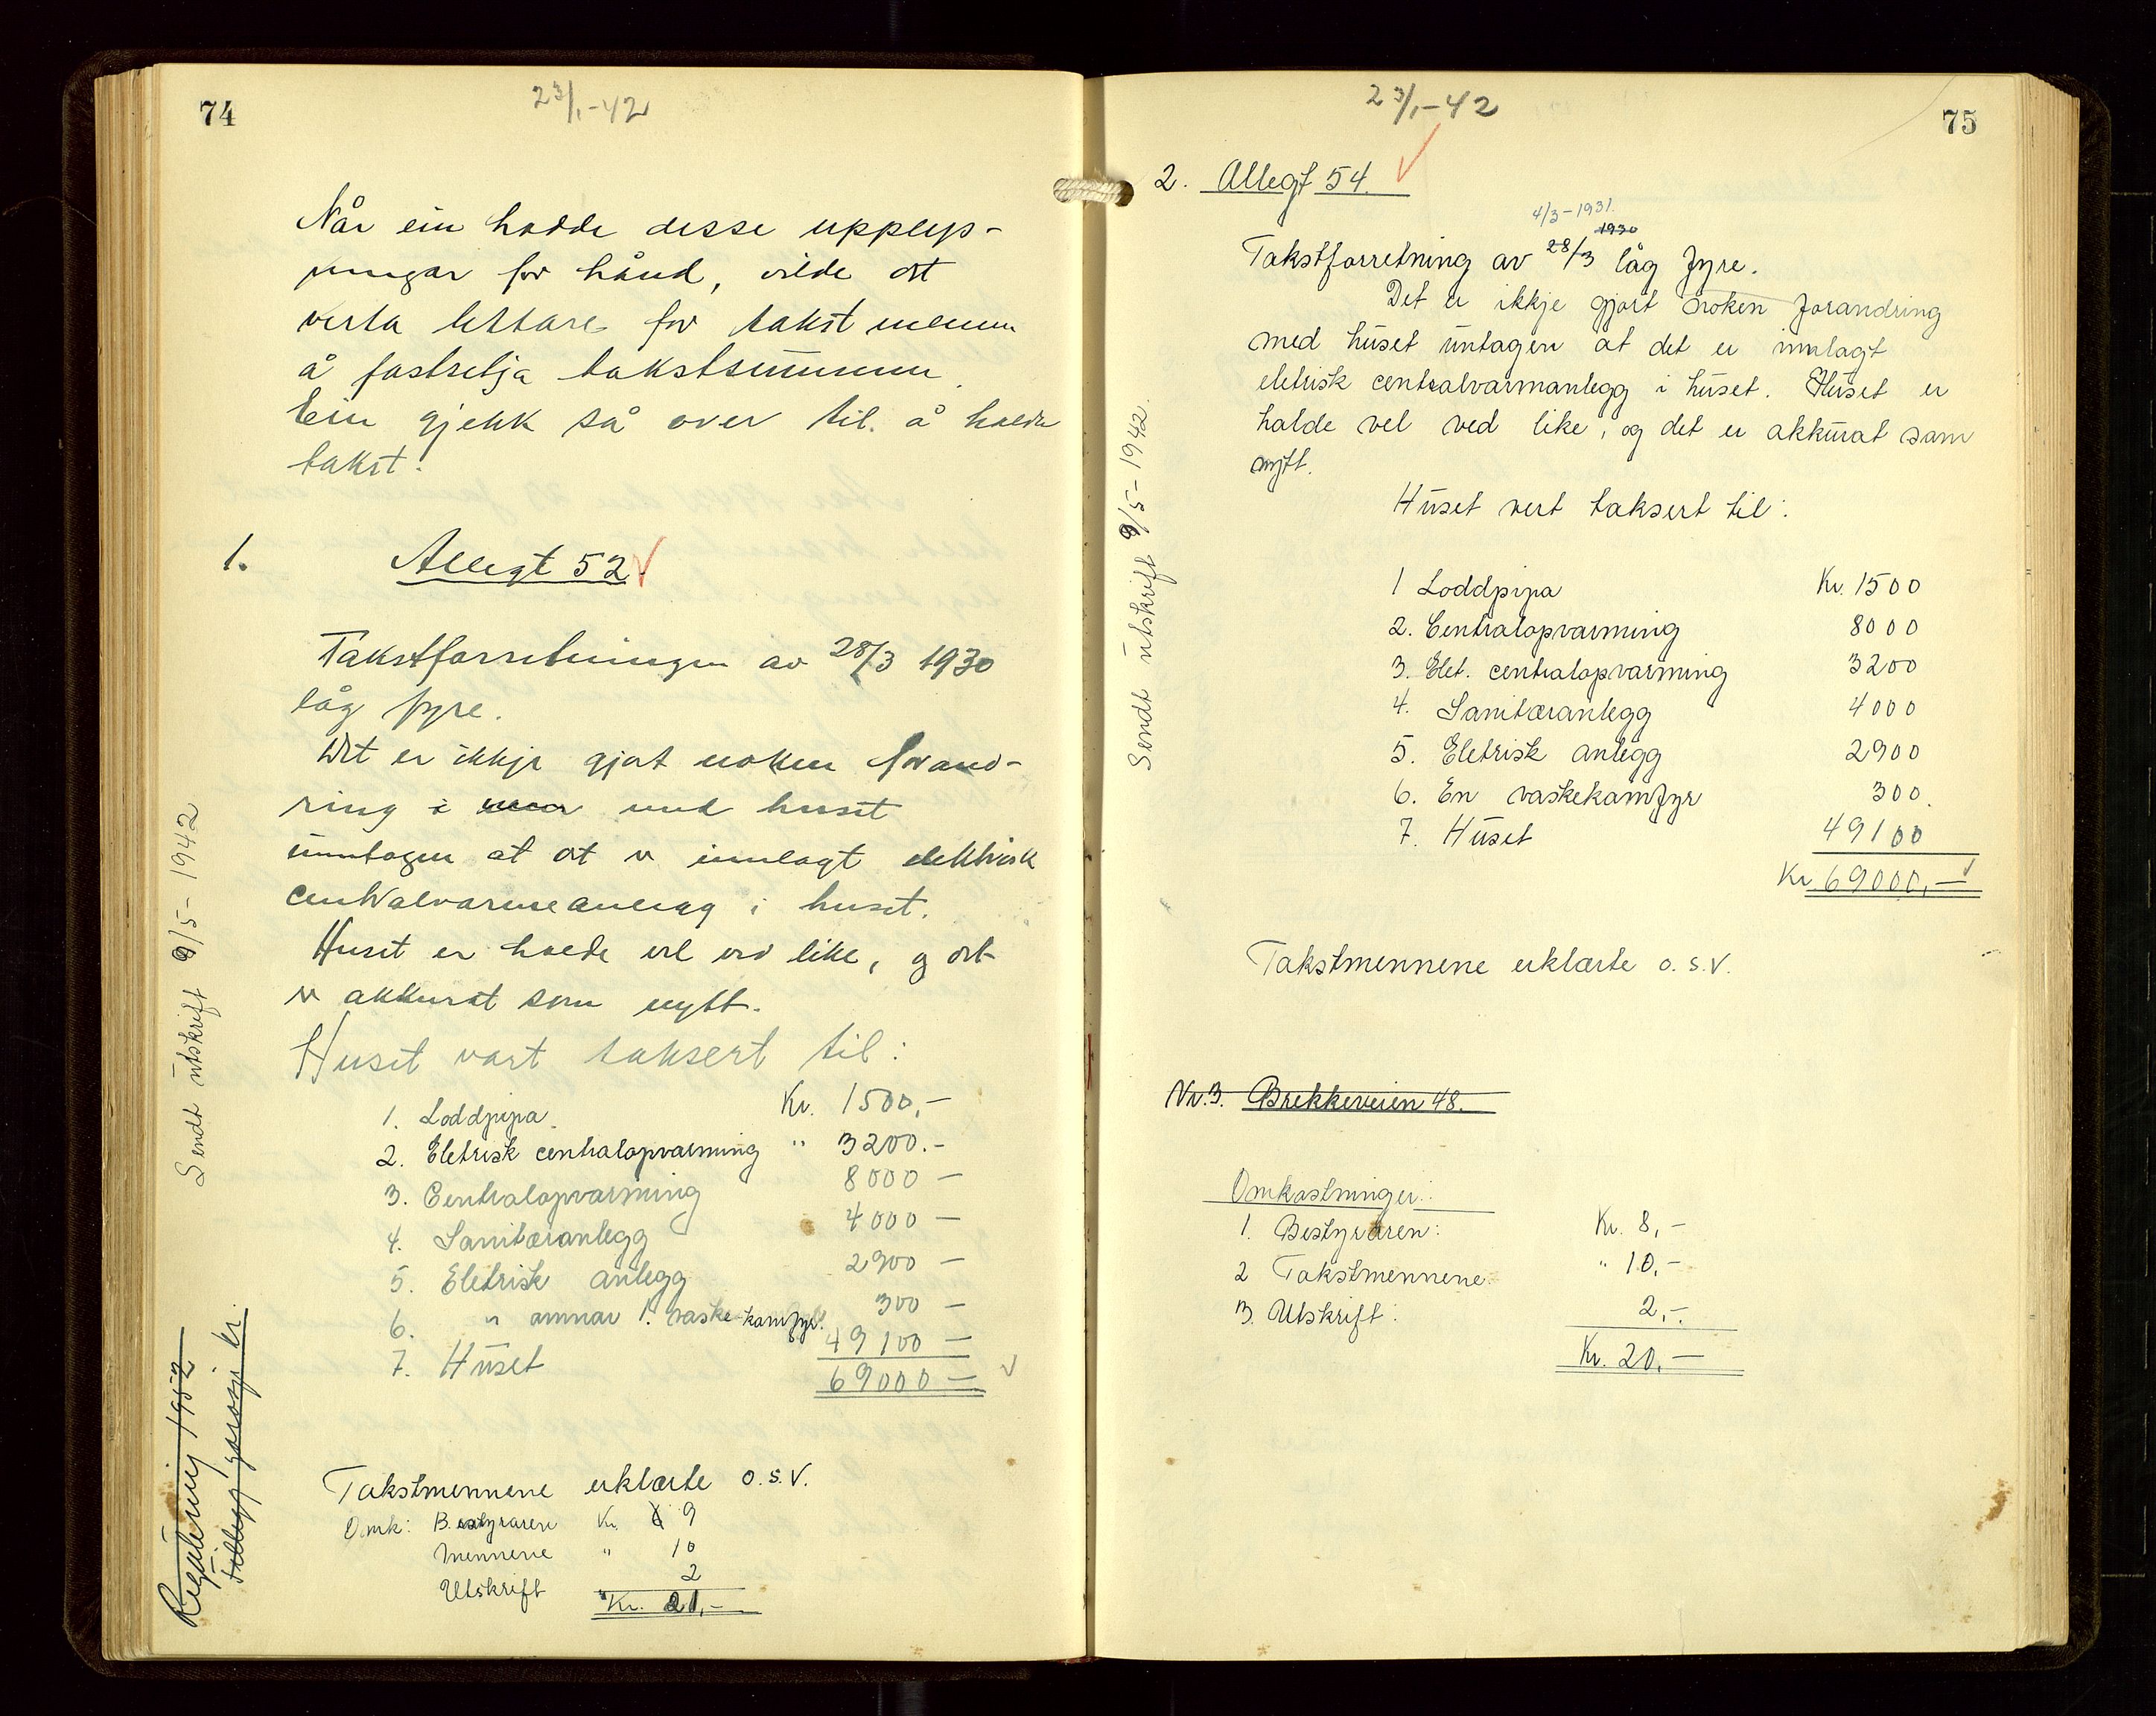 74
23/1-42
Når ein hadde desse upplys-
ningar for hånd, vilde det
verta lettare for takstmennm
å fastsetja takstsummen.
Ein gjekk så over til å halda
takst.
1. Allegt 52
Takstforretningen av 28/3 1930
låg fyre.
Det er ikkje gjort noken forand-
ring i med huset
unntagen at det er innlagt elektrisk
centralvarmeanlegg i huset.
Huset er halde vel ved like, og det
er akkurat som nytt.
Huset vart taksert til:
1. Loddpipa Kr. 1500,-
2. Eletrisk centralopvarming " 3200.-
3. Centralopvarming 8000 -
4. Sanitæranlegg 4000 -
5. Eletrisk anlegg 2900 -
6. " annar 1. vaske-kamfyr. 300 -
7. Huset 49100 -
69000 -
Takstmennene erklærte o.s.v.
Omk: Bestyraren Kr. 9
Mennene " 10
Utskrift 2
Kr. 21,-
Sendt utskrift 9/5-1942
Regulering 1952
Tillegg garasje kr.
75
23/1-42
2. Allegt 54.
4/3-1931.
1930
Takstforretning av 28/3 låg fyre.
Det er ikkje gjort noken forandring
med huset untagen at det er innlagt
eletrisk centralvarmanlegg i huset. Huset er
halde vel ved like, og det er akkurat som
nytt.
Huset vert taksert til:
1 Loddpipa Kr. 1500
2. Centralopvarming 8000
3. Elet. centralopvarming 3200
4. Sanitæranlegg 4000
5. Eletrisk anlegg 2900
6. En vaskekamfyr 300.
7. Huset 49100
Kr. 69000,-
Takstmennene erklærte o.s.v.
Sendt utskrift 9/5-1942.
Nr. 3. Brekkeveien 48.
Omkostninger:
1. Bestyraren: Kr. 8,-
2 Takstmennene: " 10,-
3. Utskrift: 2,-.
Kr. 20,-